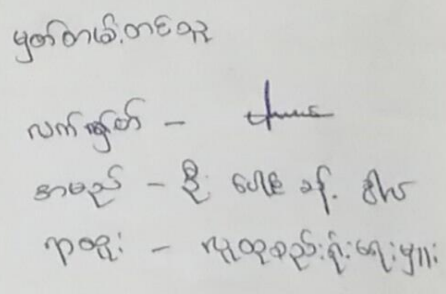 မှတ်တမ်းတင်သူ
လက်မှတ် -
အမည် - ဦး ပေါ
ရာထူး - လူထုစည်းရုံးရေးမှူး